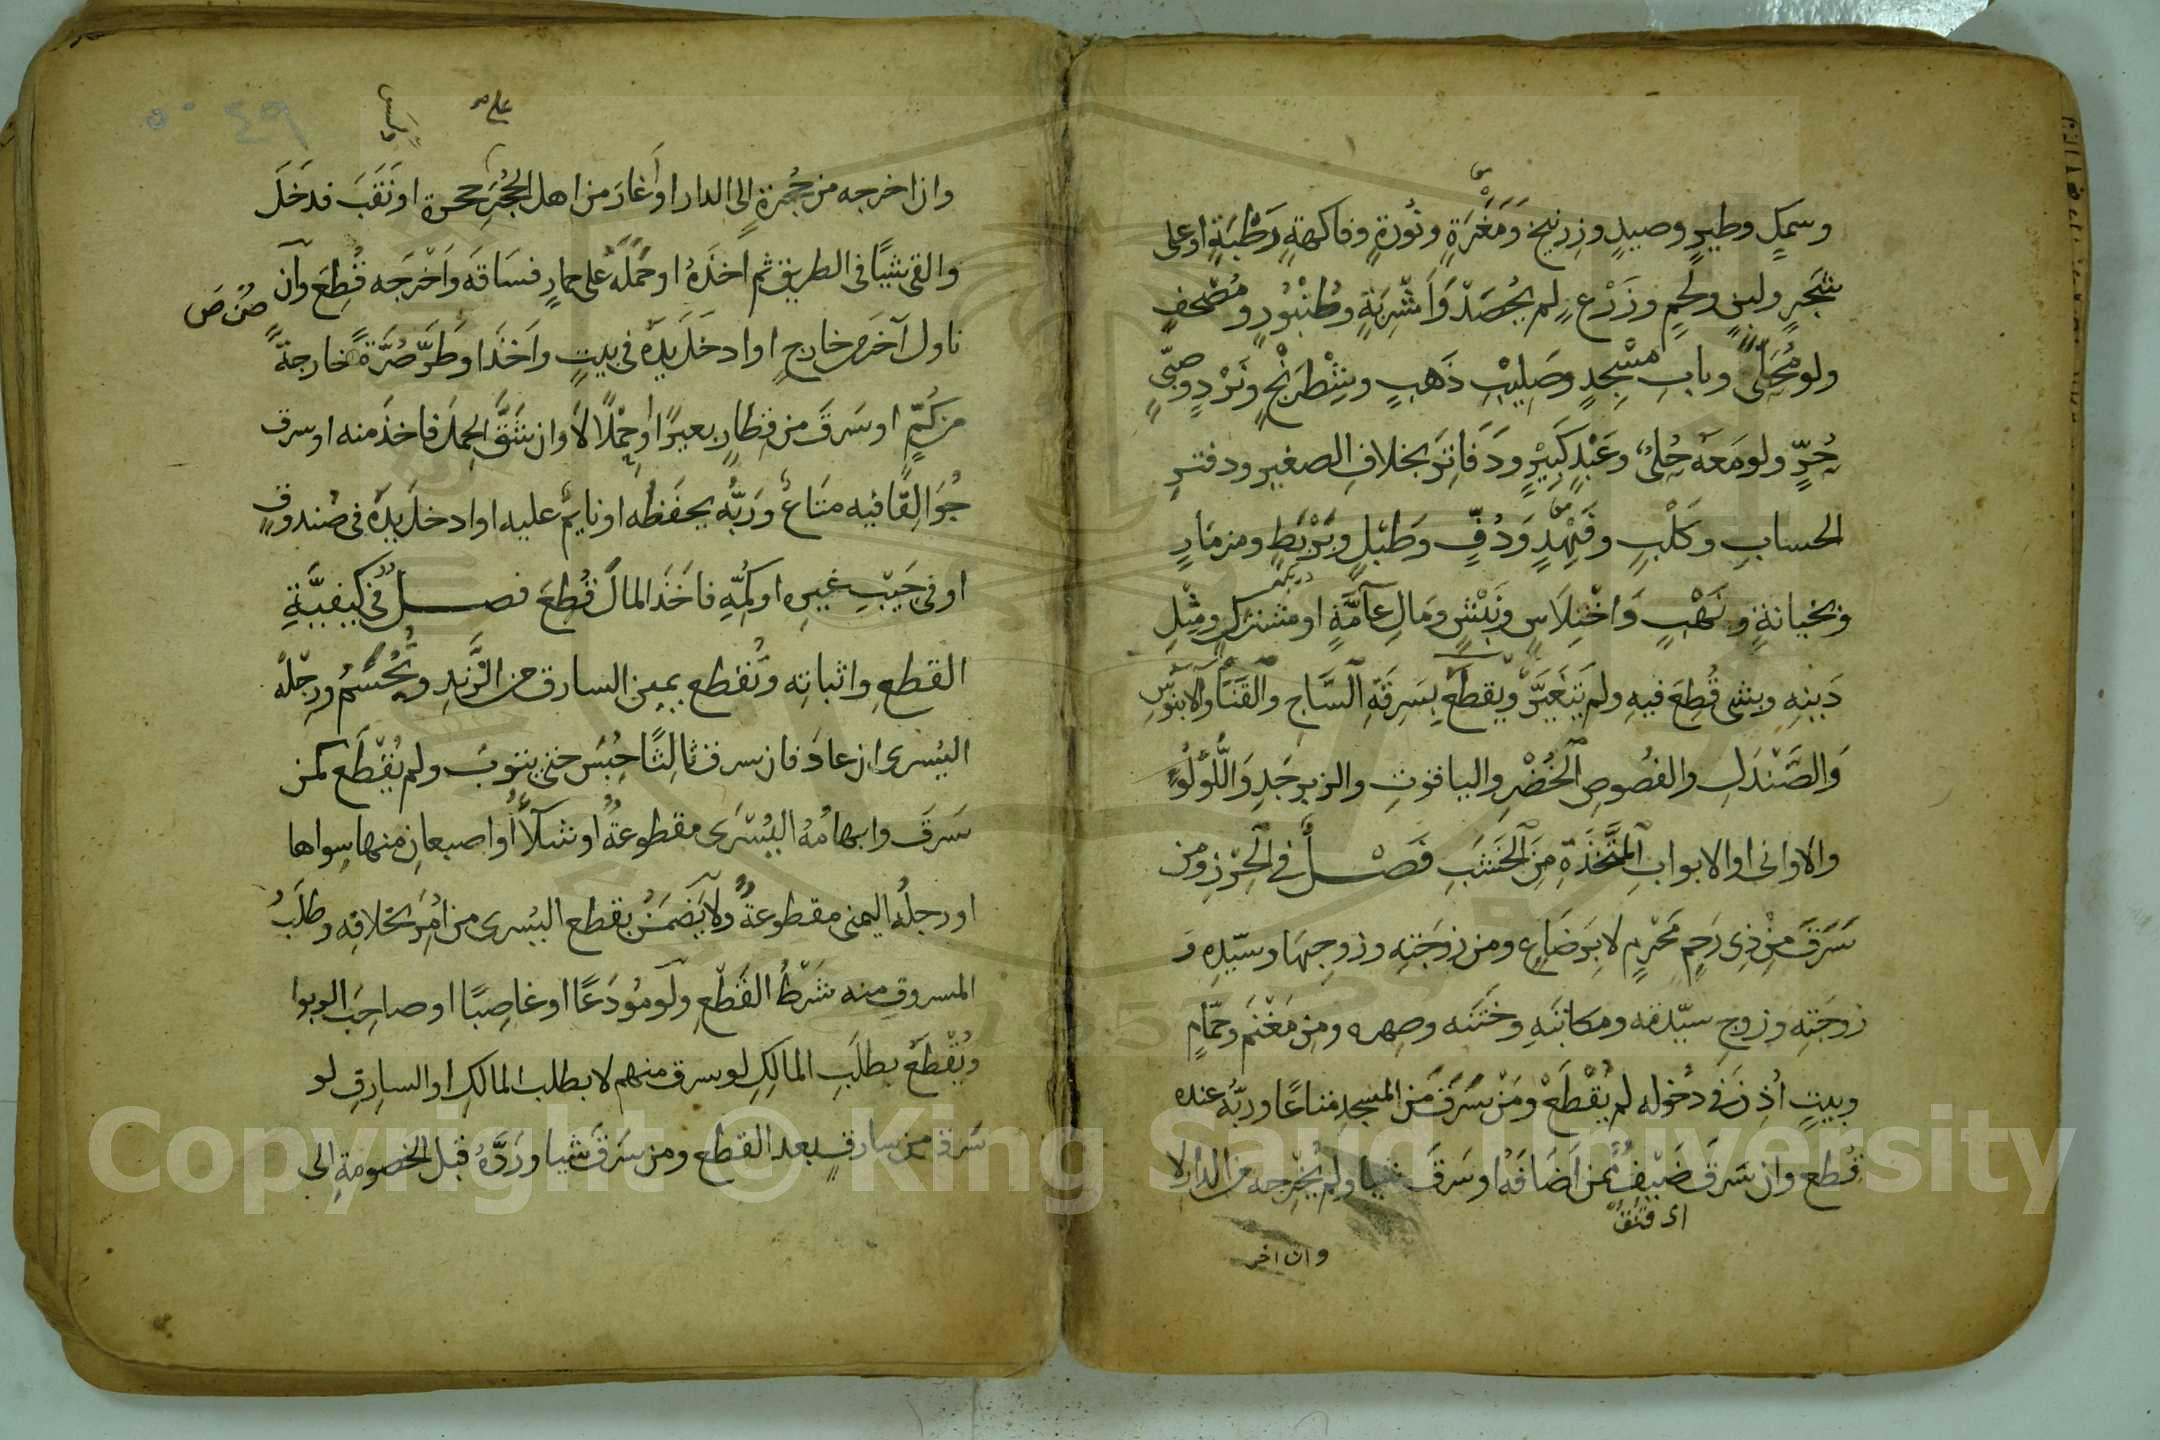 وسمكٍ وطيرٍ وصيدٍ وزرنيخ وَمَغْرَةٍ ونُورةٍ وفاكهةٍ رَطْبَةٍ او على
شجرٍ ولبنٍ ولحمٍ وزَرْعٍ لم يُحصَدْ وَاَشْرِبَةٍ وطُنْبُورٍ ومُصْحفٍ
ولو مُحَلّىً وبابِ مسْجِدٍ وصَلِيْبِ ذَهَبٍ وشِطْرَنْجٍ ونَرْدٍ وصبىٍّ
حُرٍّ ولو معَه حُلِىٌّ وعَبْدٍ كَبِيْرٍ ودَفَاتِرَ بخلافِ الصغيرِ ودفترِ
الحسابِ وكَلْبٍ وفَهْدٍ وَدُفٍّ وطَبْلٍ وبَرْبَطٍ ومزمَارٍ
وبخيانةٍ ونَهْبٍ وَاخْتِلَاسٍ ونَبْشٍ ومَالِ عآمَّةٍ او مشتركٍ ومِثْلِ
دَينِهِ وبشىءٍ قُطِعَ فيهِ ولم يَتَغَيَّرْ ويقطَعُ بِسَرِقَةِ السَّاجِ والْقَنَا والآبنُوسِ
وَالصَّنْدَلِ والفُصُوصِ الْخُضْرِ والياقوتِ والزبرجَدِ وَاللُّؤْلُوءِ
والاوانى والابوابِ المُتَّخَذَةِ مِنَ الخَشَبِ فَصْلٌ فى الحِرْزِ ومن
سَرَقَ مِنْ ذِى رَحِمٍ مَحْرَمٍ لا بِرَضَاعٍ ومن زوجَتِهِ وزوجِهَا وسيّدِهِ و
زوجَتِهِ وزوجِ سيّدتِه ومكاتَبِهِ وخَتَنِه وصِهرِه ومِن مَغْنَمٍ وحمّامٍ
وبيتٍ اُذِنَ فى دُخولِهِ لم يُقْطَعْ ومَنْ سَرَقَ من المسجدِ متاعًا وربُّهُ عنده
قُطع وان سَرَقَ ضَيْفٌ ممن اَضَافَهُ او سَرَقَ شيا ولم يُخْرِجه من الدار لا
وان اخر
وان اخرجه من حُجْرَةٍ الى الدار او اَغارَ من اهل الحُجَرِ حجرة او نَقَبَ فدخَلَ
والقى شيًا فى الطريق ثم اخذَهُ او حَمَلَهُ على حمارٍ فسَاقَه وَاَخْرَجَه قُطِعَ وان
ناول آخَرَ من خارجٍ او ادخَلَ يدَهُ فى بيتٍ واَخَذَ او طَرَّ صُرَّةً خارجةً
من كُمٍّ او سَرَقَ من قِطَارٍ بعيرًا او حِمْلًا لَا وان شَقَّ الحِملَ فاخذَ منه او سرق
جُوَالِقًا فيه متَاعٌ ورَبُّه يحفَظُه او نايمٌ عليه او ادخلَ يدَهُ فى صُندوقٍ
او فى جَيْبِ غيرِه او كُمِّهِ فاَخَذَ المالَ قُطِعَ فصلٌ فى كيفيَّةِ
القطعِ واثباتِه وتُقطع يمين السارق من الزَّنْدِ وتُحْسَمُ ورِجْلُهُ
اليُسرى ان عادَ فان سرق ثالثًا حُبِسَ حتى يتوبَ ولم يُقْطَع كمن
سَرَقَ وابهامُهُ اليُسْرَى مقطوعةٌ او شلاَّءُ او اصبعانِ منها سِواها
او رجلُهُ اليمنى مقطوعةٌ ولا يَضمَنُ بقطع اليُسرى من اُمِرَ بخلافِه وطَلَبُ
المسروقِ منه شَرْطُ القَطْعِ ولو مُودَعًا او غاصِبًا او صاحِبَ الربوا
ويُقْطَعُ بطَلَبِ المالِكِ لو سرق منهم لا بطلب المالكِ او السارِقِ لو
سَرَقَ من سارقٍ بعد القطعِ ومن سَرَقَ شيا ورَدَّهُ قبْل الخصومةِ الى
Copyright © King Saud University